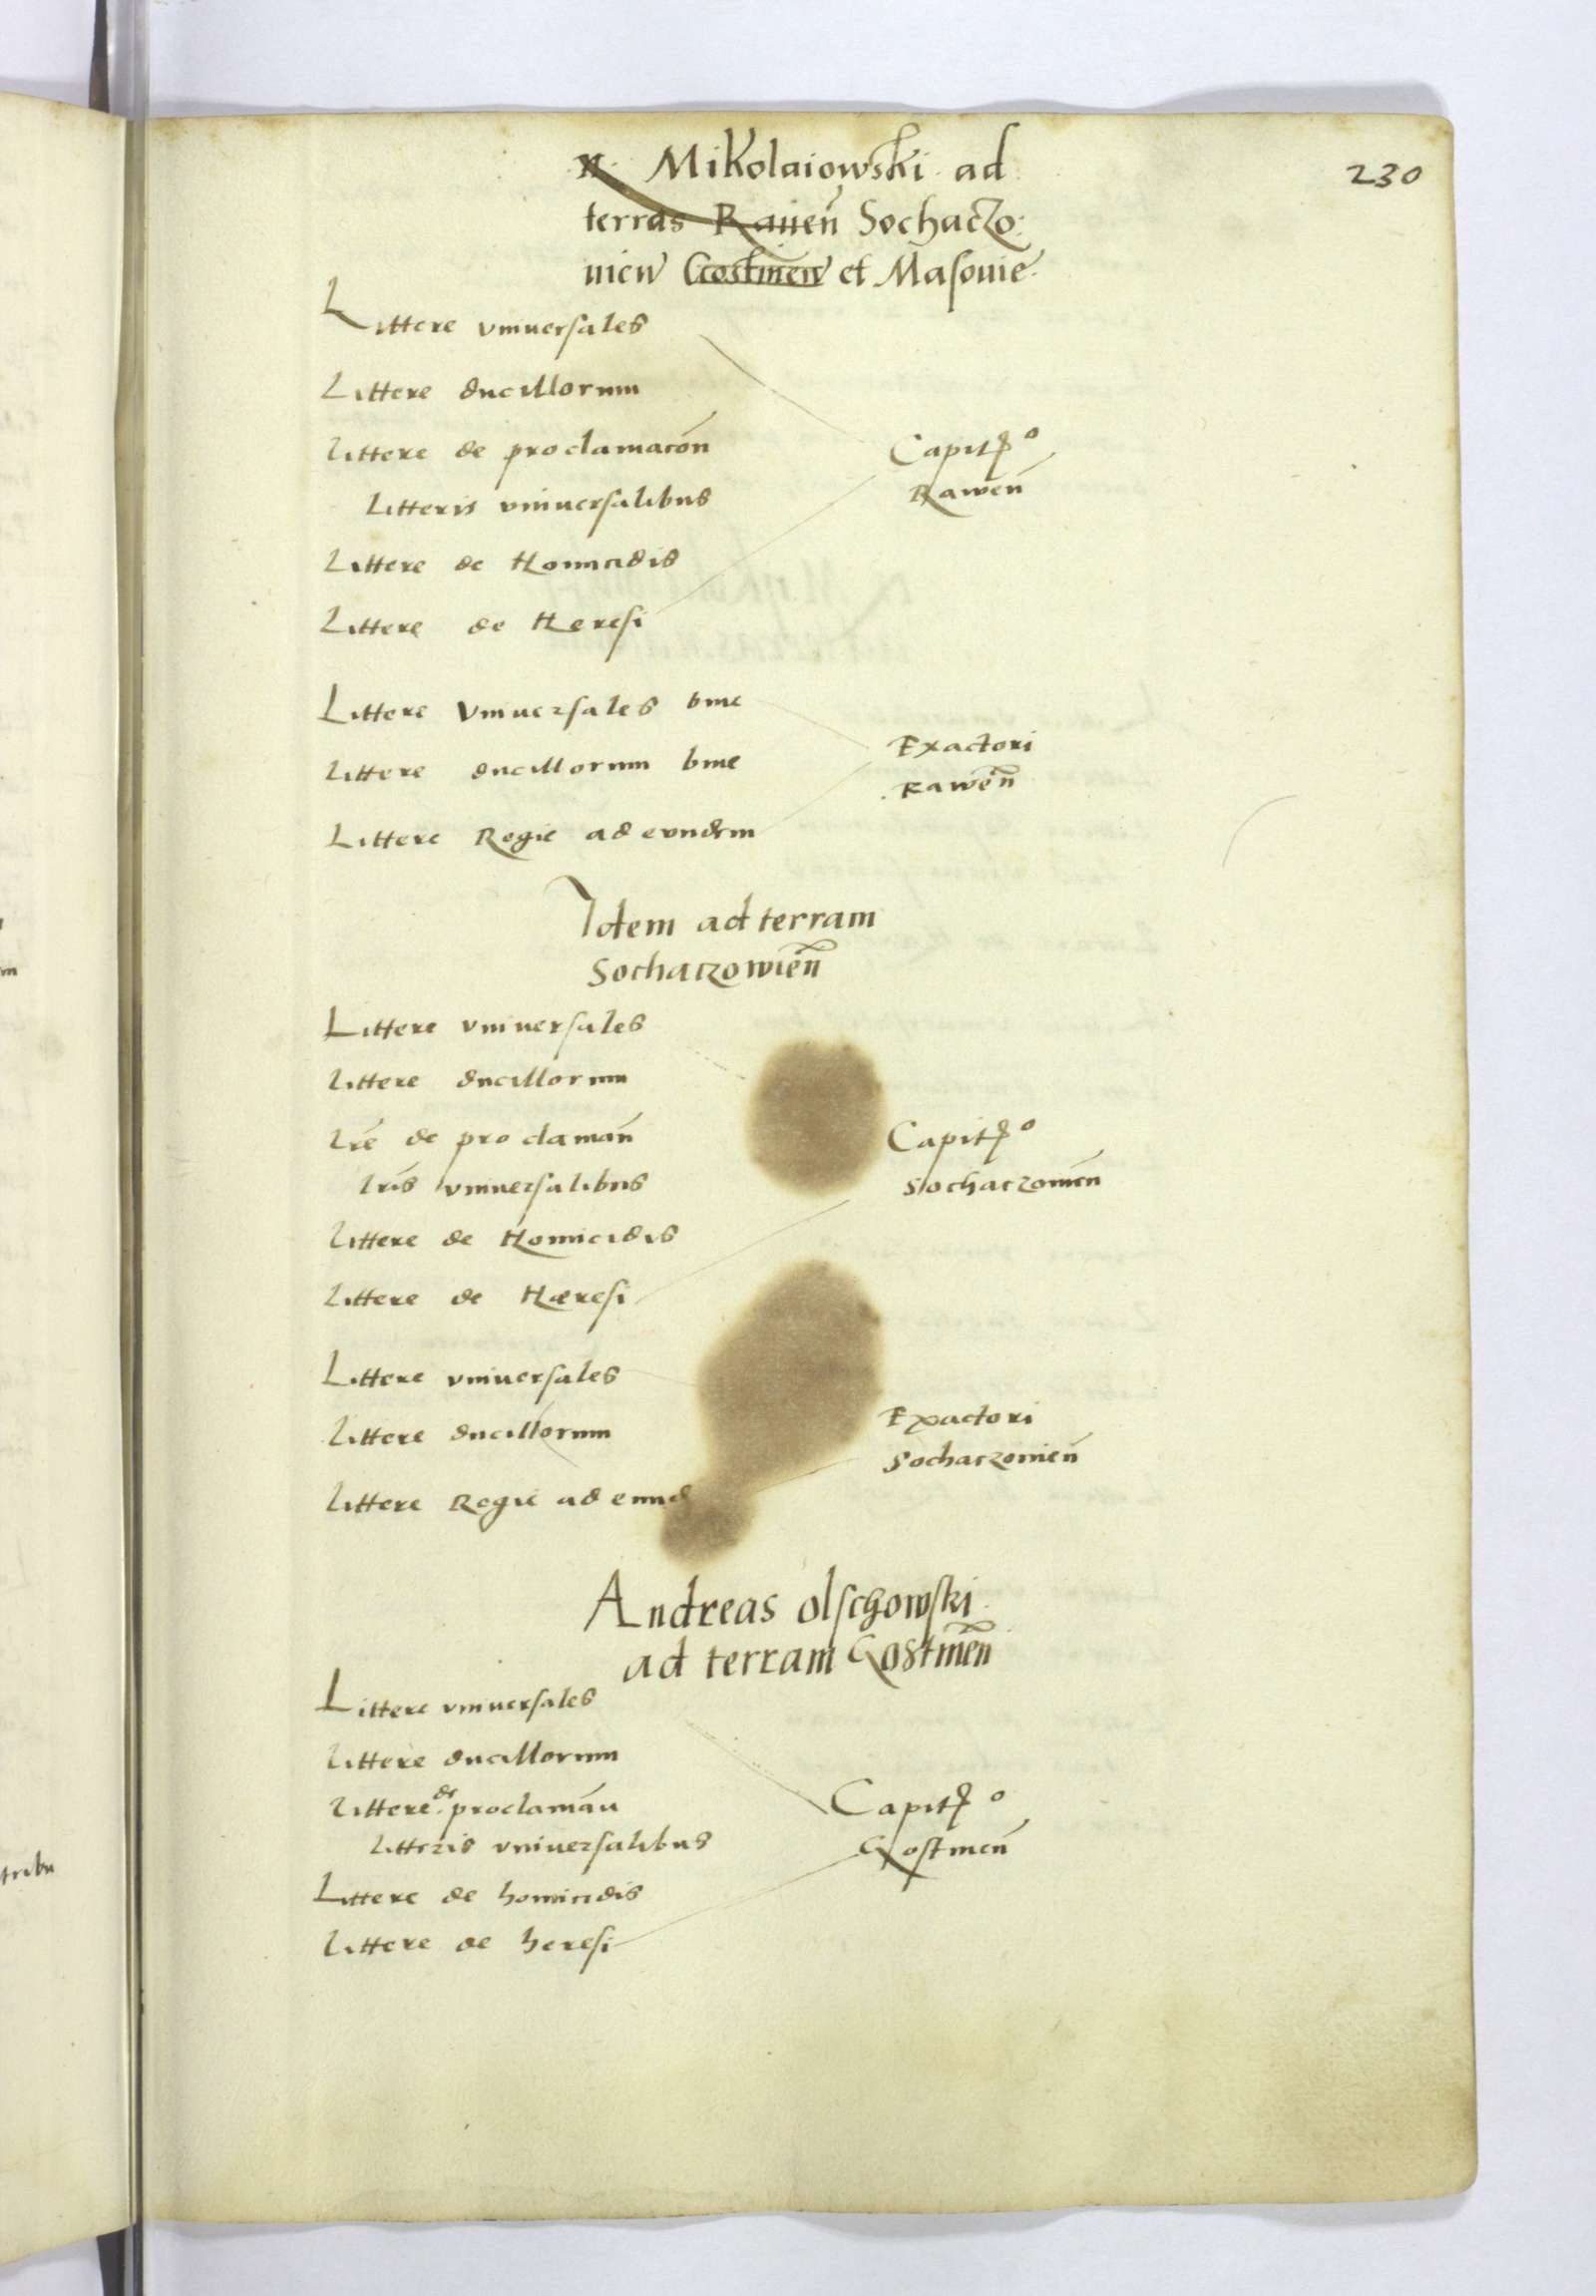 230
N. Mikolaiowski ad
terras Rauen̄ Sochaczo:
uien̄ Gostinen̄ et Masouie.
Littere vniuersales
Littere ducillorum
Littere de proclamacōn
Litteris vniuersalibus
Littere de Homicidis
Littere de Heresi
Capit o
Rawen̄
Littere Vniuersales bine
Littere ducillorum bine
Littere Regie ad eundem
Exactori
Rawen̄
Idem ad terram
Sochaczowien̄
Littere vniuersales
Littere ducillorum
Lr̄e de proclaman̄
Lr̄is vniuersalibus
Littere de Homicidis
Littere de Hæresi
Capit o
Sochaczouien̄
Littere vniuersales
Littere ducillorum
Littere Regie ad eund
Exactori
Sochaczouien̄
Andreas Olschowski
ad terram Gostinen̄
Littere vniuersales
Littere ducillorum
Littere de proclaman̄
Litteris vniuersalibus
Littere de homicidis
Littere de heresi
Capit o
Gostinen̄
tribu